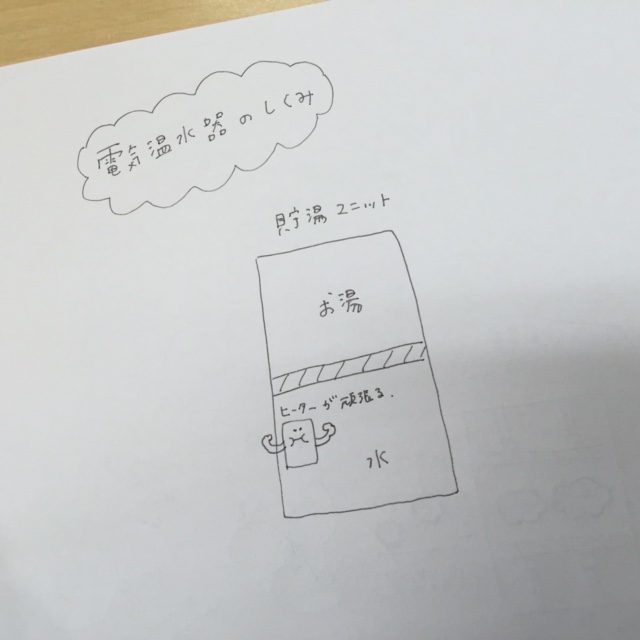 電気温水器のしくみ
貯湯ユニット
お湯
ヒーターが頑張る.
水